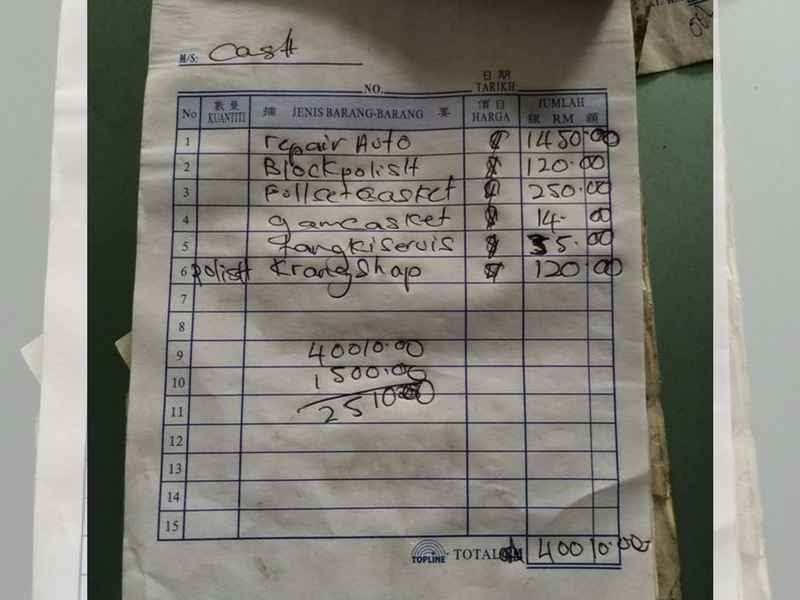 M/S: Cash
NO.
日期
TARIKH
No 數量 KUANTITI JENIS BARANG-BARANG 價目 HARGA JUMLAH RM
1 repair Auto $ 1450.00
2 Block polish $ 120.00
3 Follset Gasket $ 250.00
4 gam casket $ 14. 00
5 tangki servis $ 35.00
6 polish Krang Shap $ 120.00
7
8
9 40010.00
10 1500.00
11 251000
12
13
14
15
TOPLINE TOTAL 40010.00